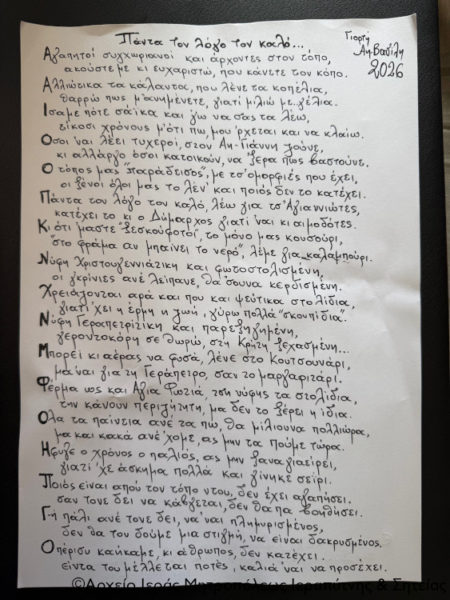 Πάντα τον λόγο τον καλό...
Γιορτή
Αη-Βασίλη
2026
Αγαπητοί συγχωριανοί και άρχοντες στον τόπο,
ακούστε με κι ευχαριστώ, που κάνετε τον κόπο.
Αλλιώτικα τα κάλαντα, που λένε τα κοπέλια,
θαρρώ πως μ'ανημένετε, γιατί μιλιώ με γέλια.
Ίσαμε πότε σάικα και γω να σας τα λέω,
είκοσι χρόνους μ'ότι πω, μου'ρχεται και να κλαίω.
Όσοι 'ναι λέει τυχεροί, στον Αη-Γιάννη ζούνε,
κι αλλάργο όσοι κατοικούν, να ξερα πως βαστούνε.
Ο τόπος μας "παράδεισος", με τσ'ομορφιές που έχει,
οι ξένοι όλοι μας το λεν' και ποιός δεν το κατέχει.
Πάντα τον λόγο τον καλό, λέω για τσ'Άγιαννιώτες,
κατέχει το κι ο Δήμαρχος γιατί 'ναι κι αιμοδότες.
Κι ότι μαστε "ξεσκούφωτοι", το μόνο μας κουσούρι,
"στο φράμα αν μπαίνει το νερό", λέμε για καλαμπούρι.
Νύφη Χριστουγεννιάτικη και φωτοστολισμένη,
οι γκρίνιες ανέ λείπανε, θα 'σουνα κερδισμένη.
Χρειάζονται αρά και που και ψεύτικα στολίδια,
γιατί 'χει η έρμη η ζωή, γύρω πολλά "σκουπίδια".
Νύφη Γεραπετρίτικη και παρεξηγημένη,
γεροντοκόρη σε θωρώ, στη Κρήτη ξεχασμένη...
Μπορεί κι αέρας να φυσά, λένε στο Κουτσουνάρι,
μα 'ναι για τη Γεράπετρο, σαν το μαργαριτάρι.
Φέρμα ως και Άγια Φωτιά, τση νύφης τα στολίδια,
την κάνουν περιζήτητη, μα δεν το ξέρει η ίδια.
Όλα τα παίνεια ανέ τα πω, θα μίλιουνα πολλιώρα,
μα και κακά ανέ 'χομε, ας μην τα πούμε τώρα.
Ήφυγε ο χρόνος ο παλιός, ας μην ξαναγιαείρει,
γιατί 'χε άσκημα πολλά και γίνηκε σείρι.
Ποιός είναι από τον τόπο ντου, δεν έχει αγαπήσει.
σαν τονε δει να καβγεται, δεν θα πα βουηθήσει.
Γή πάλι ανέ τονε δει, να 'ναι πλημυρισμένος,
δεν θα τον δούμε μια στιγμή, να είναι δακρυσμένος.
Ο πέρισυ κάηκαμε, κι άθρωπος, δεν κατέχει...
είντα του μέλλεται ποτές, καλιά 'ναι να προσέχει.
©Αρχείο Ιεράς Μητροπόλεως Ιεραπύτνης & Σητείας